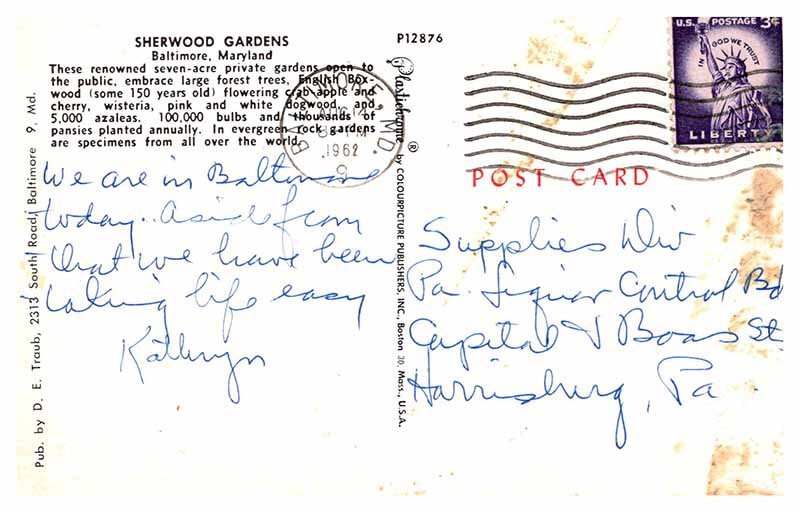 SHERWOOD GARDENS
Baltimore, Maryland
These renowned seven-acre private gardens open to
the public, embrace large forest trees, English Box-
wood (some 150 years old) flowering crab apple and
cherry, wisteria, pink and white dogwood and
5,000 azaleas. 100,000 bulbs and thousands of
pansies planted annually. In evergreen rock gardens
are specimens from all over the world.
We are in Baltimore
today. Aside from
that we have been
taking life easy
Kathryn
Pub. by D. E. Traub, 2313 South Road, Baltimore 9, Md.
P12876
Plastichrome ® by COLOURPICTURE PUBLISHERS, INC., Boston 30, Mass., U.S.A.
BALTIMORE, MD.
PM
1962
U.S. POSTAGE 3¢
IN GOD WE TRUST
LIBERTY
POST CARD
Supplies Div
Pa. Liquor Control Bd
Capital & Boas St.
Harrisburg, Pa